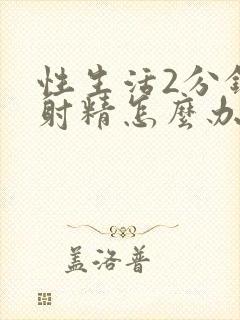 性生活2分鐘
射精怎麼办
盖洛普